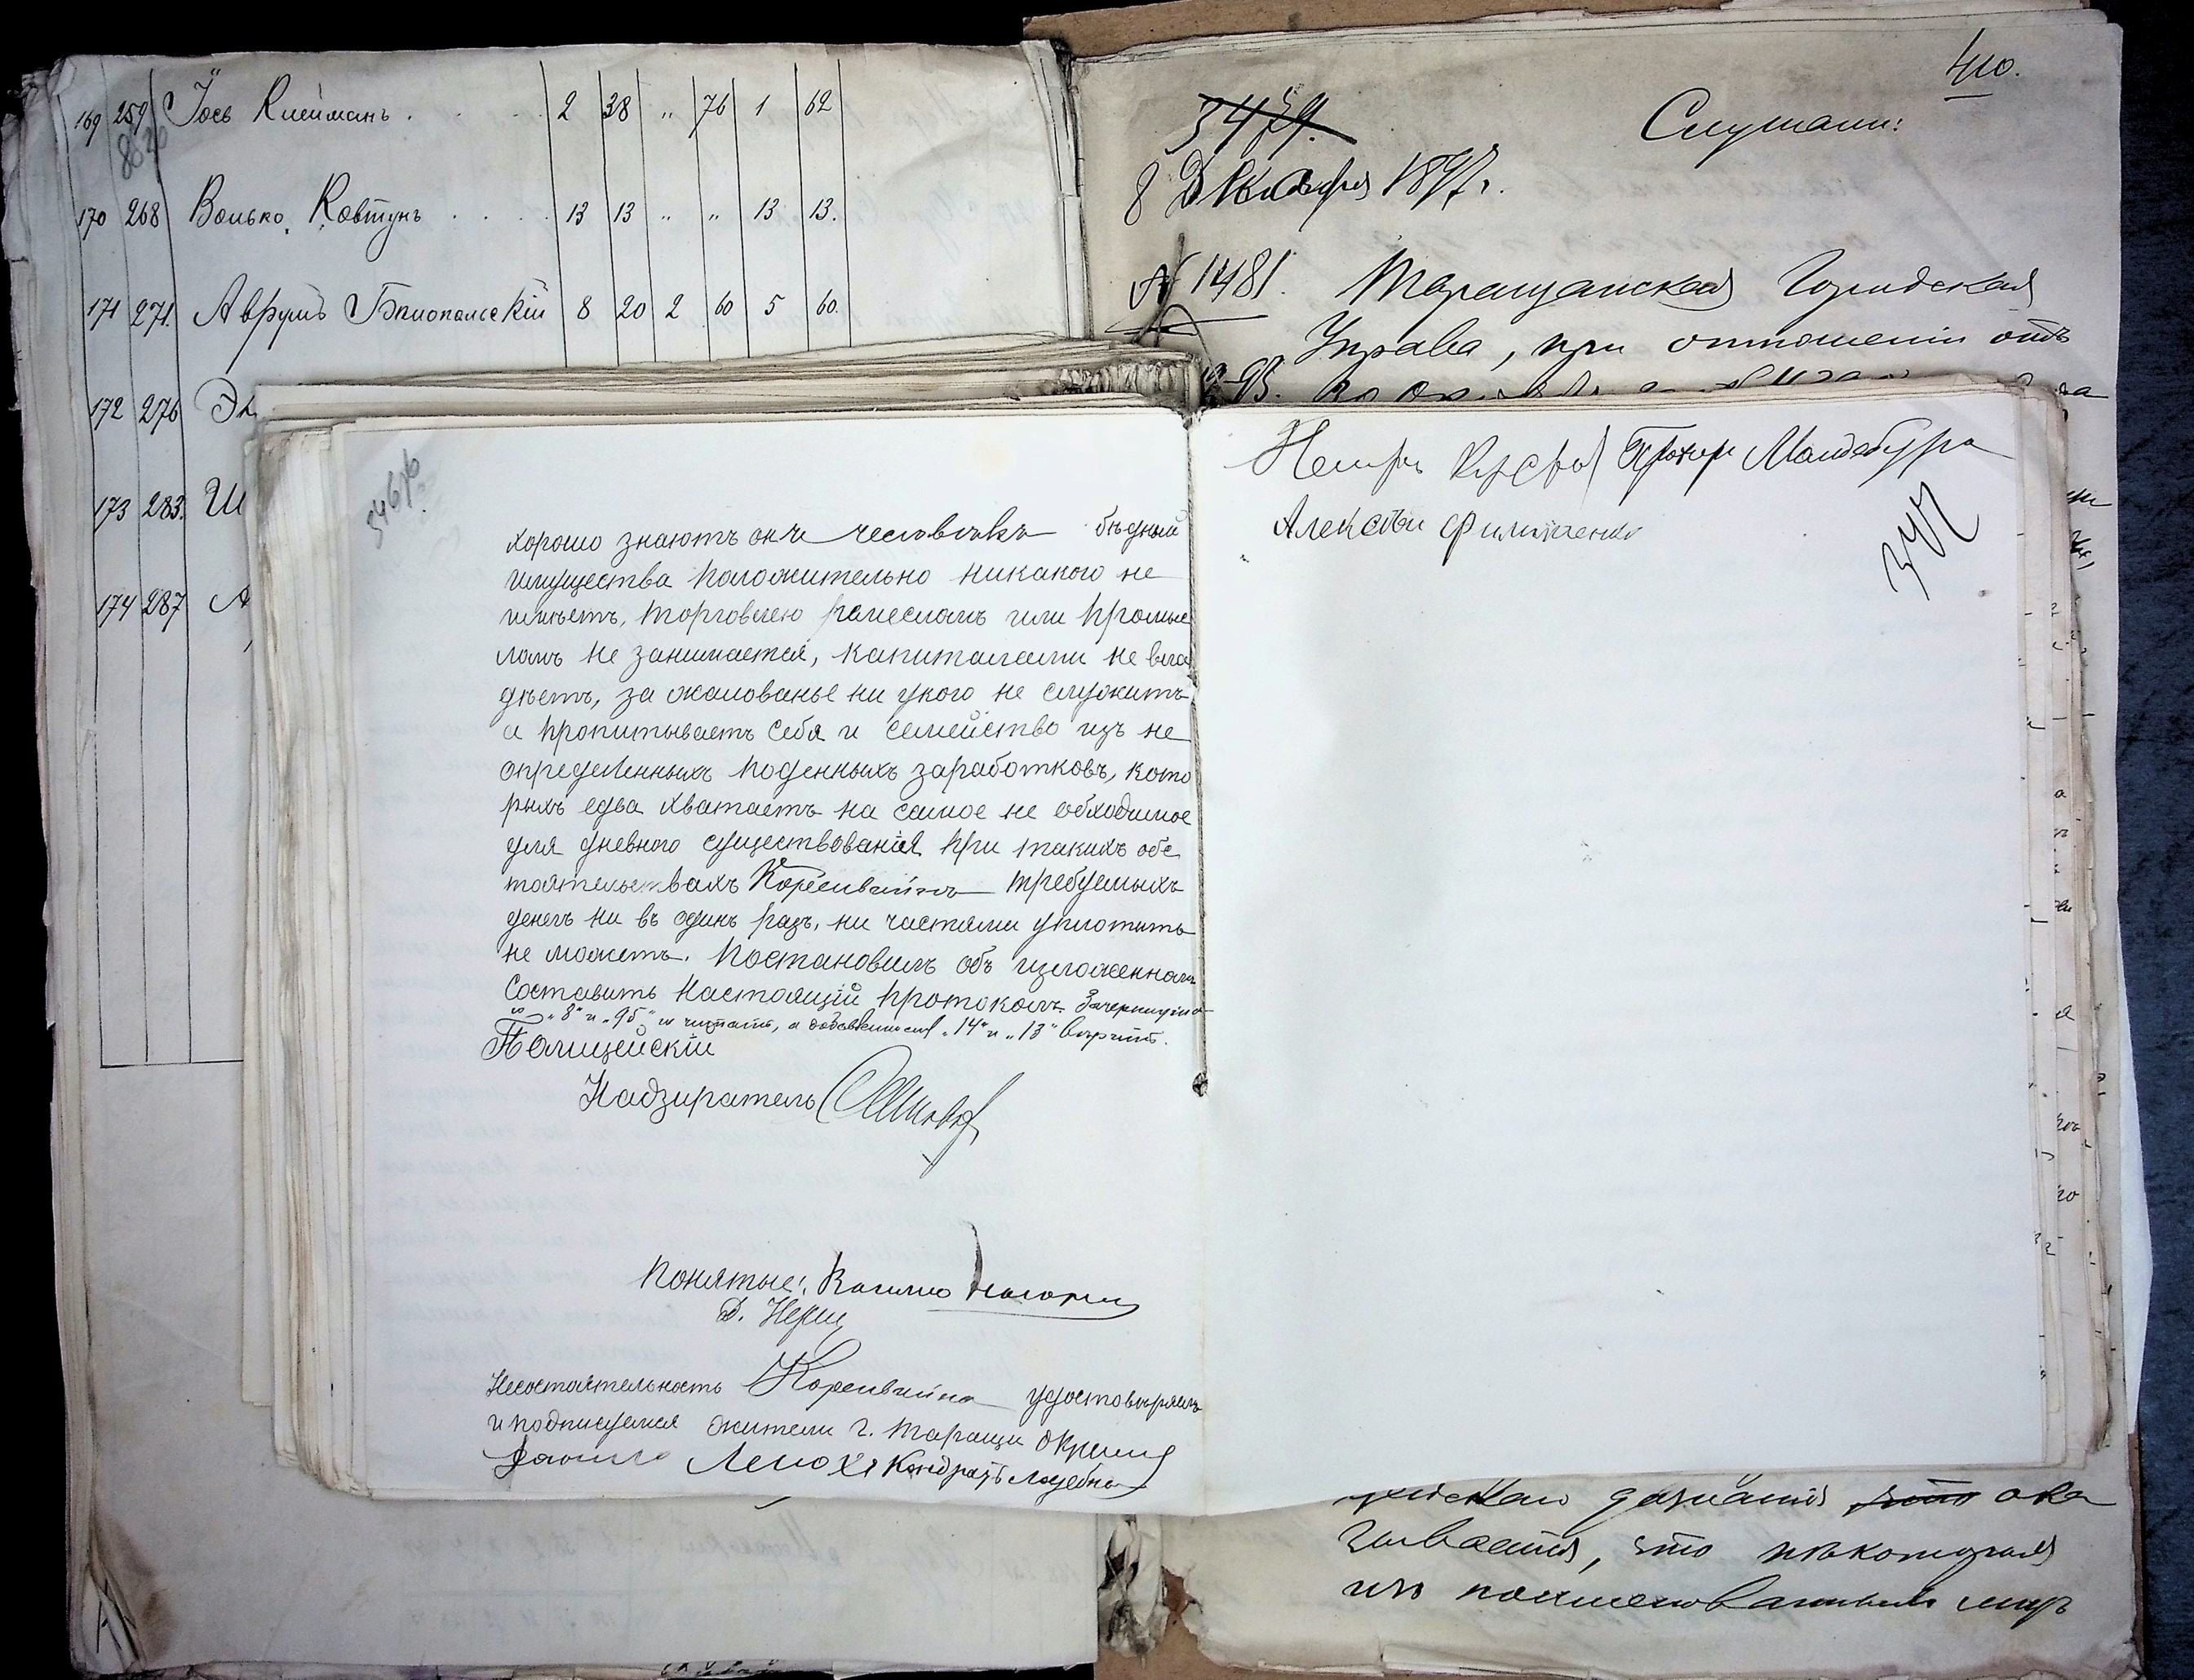 169 259 Іось Клейманъ . . . 2 38 " 76 1 62
170 268 Волько Ковтунъ . . . 13 13 " " 13 13.
171 271. Аврумъ Бялопольскій 8 20 2 60 5 60.
172 276
173 283. Ш
174 287 А
410.
3479.
Слушали:
8 Декабря 1897 г.
№ 1481. Таращанская Городская
Управа, при отношеніи отъ
346 об
хорошо знаютъ онъ человѣкъ бѣдный
имущества положительно никакого не
имѣетъ, торговлею ремесломъ или промыс
ломъ не занимается, капиталами не вла
дѣетъ, за жалованье ни укого не служитъ
а пропитываетъ себя и семейство изъ не
опредѣленныхъ поденныхъ заработковъ, кото
рыхъ едва хватаетъ на самое не обходимое
для дневного существованія при такихъ обс
тоятельствахъ Корсенвайнъ требуемыхъ
денегъ ни въ одинъ разъ, ни частями уплотить
не можетъ. Постановилъ объ изложенномъ
составить настоящій протоколъ. Зачеркнутое
"8" и "95" не читать, а добавленныя "14" и "13" вѣрить.
Полицейскій
Надзиратель
Понятые: Василь
Д.
Несостоятельность Корсенвайна удостовѣряемъ
и подписуемся жители г. Таращи
Данило Кондратъ
Прохоръ Мандебура
Алексѣй Филипченко
347
дознанія что ока
зывается, что нѣкоторыя
изъ поименованныхъ лицъ